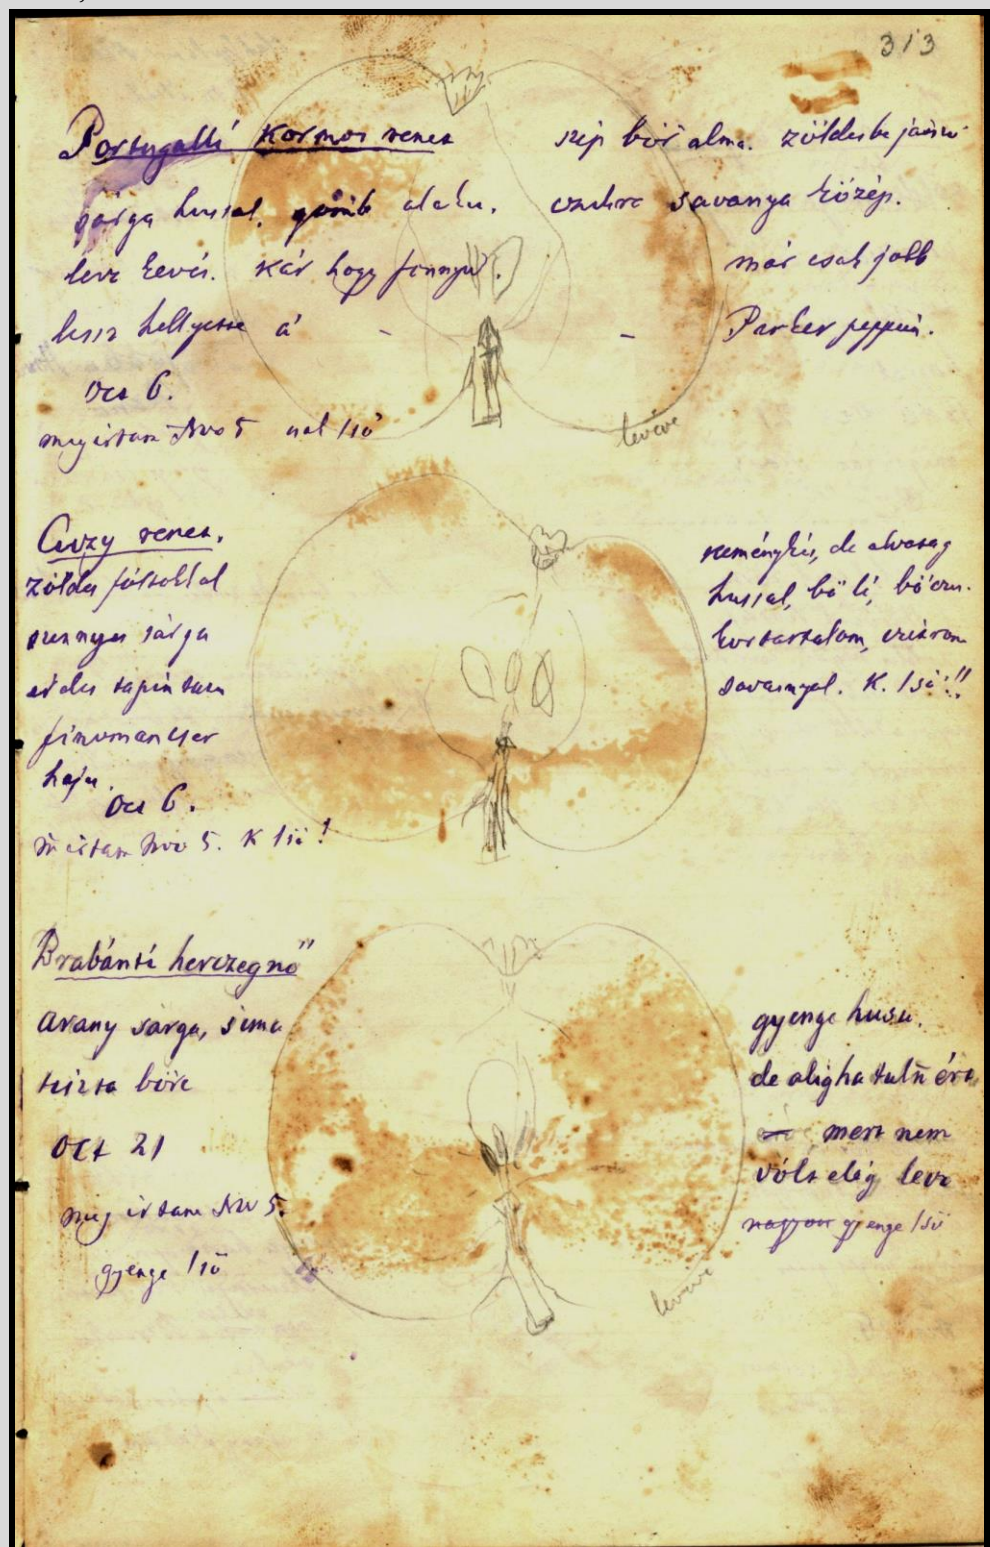 313
Portugalli Kormos renet szép bőr alma. zöldesbe játszó
sárga hussal, gömb alaku. czukra savanya közép.
leve kevés. Kár hogy fonnyad. már csak jobb
lesz hellyette a' - - Parker peppin.
Oct 6.
meg irtam Nov 5 1ső
leveve
Cuzy renet.
zöldes foltokkal
szennyes sárga
érdes tapintatu
finoman
haju.
Oct 6.
irtam Nov 5. K 1ső!
reménykés, de olvatag
hussal, bő lé, bő czu-
kortartalom, citrom
savannyal. K. 1ső!!
Brabánti herczegnő
Arany sárga, sima
tiszta bőre
Oct 21
meg irtam Nov 5.
gyenge 1ső
gyenge husu.
de aligha tuln ért
mert nem
vólt elég leve
nagyon gyenge 1ső
leveve